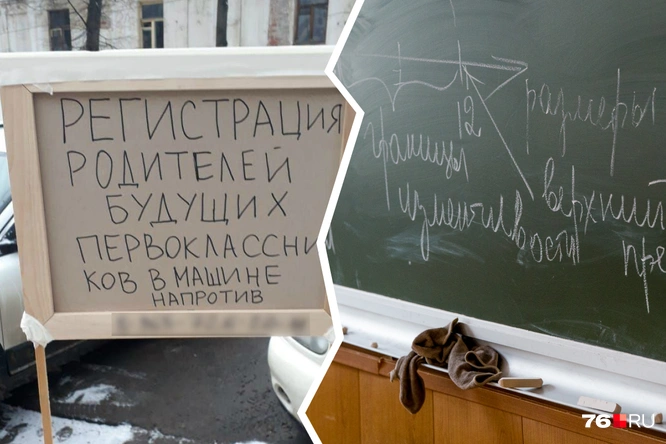 РЕГИСТРАЦИЯ
РОДИТЕЛЕЙ
БУДУЩИХ
ПЕРВОКЛАССНИ
КОВ В МАШИНЕ
НАПРОТИВ
размеры
12
границы
изменчивости
верхний
пре
76.RU